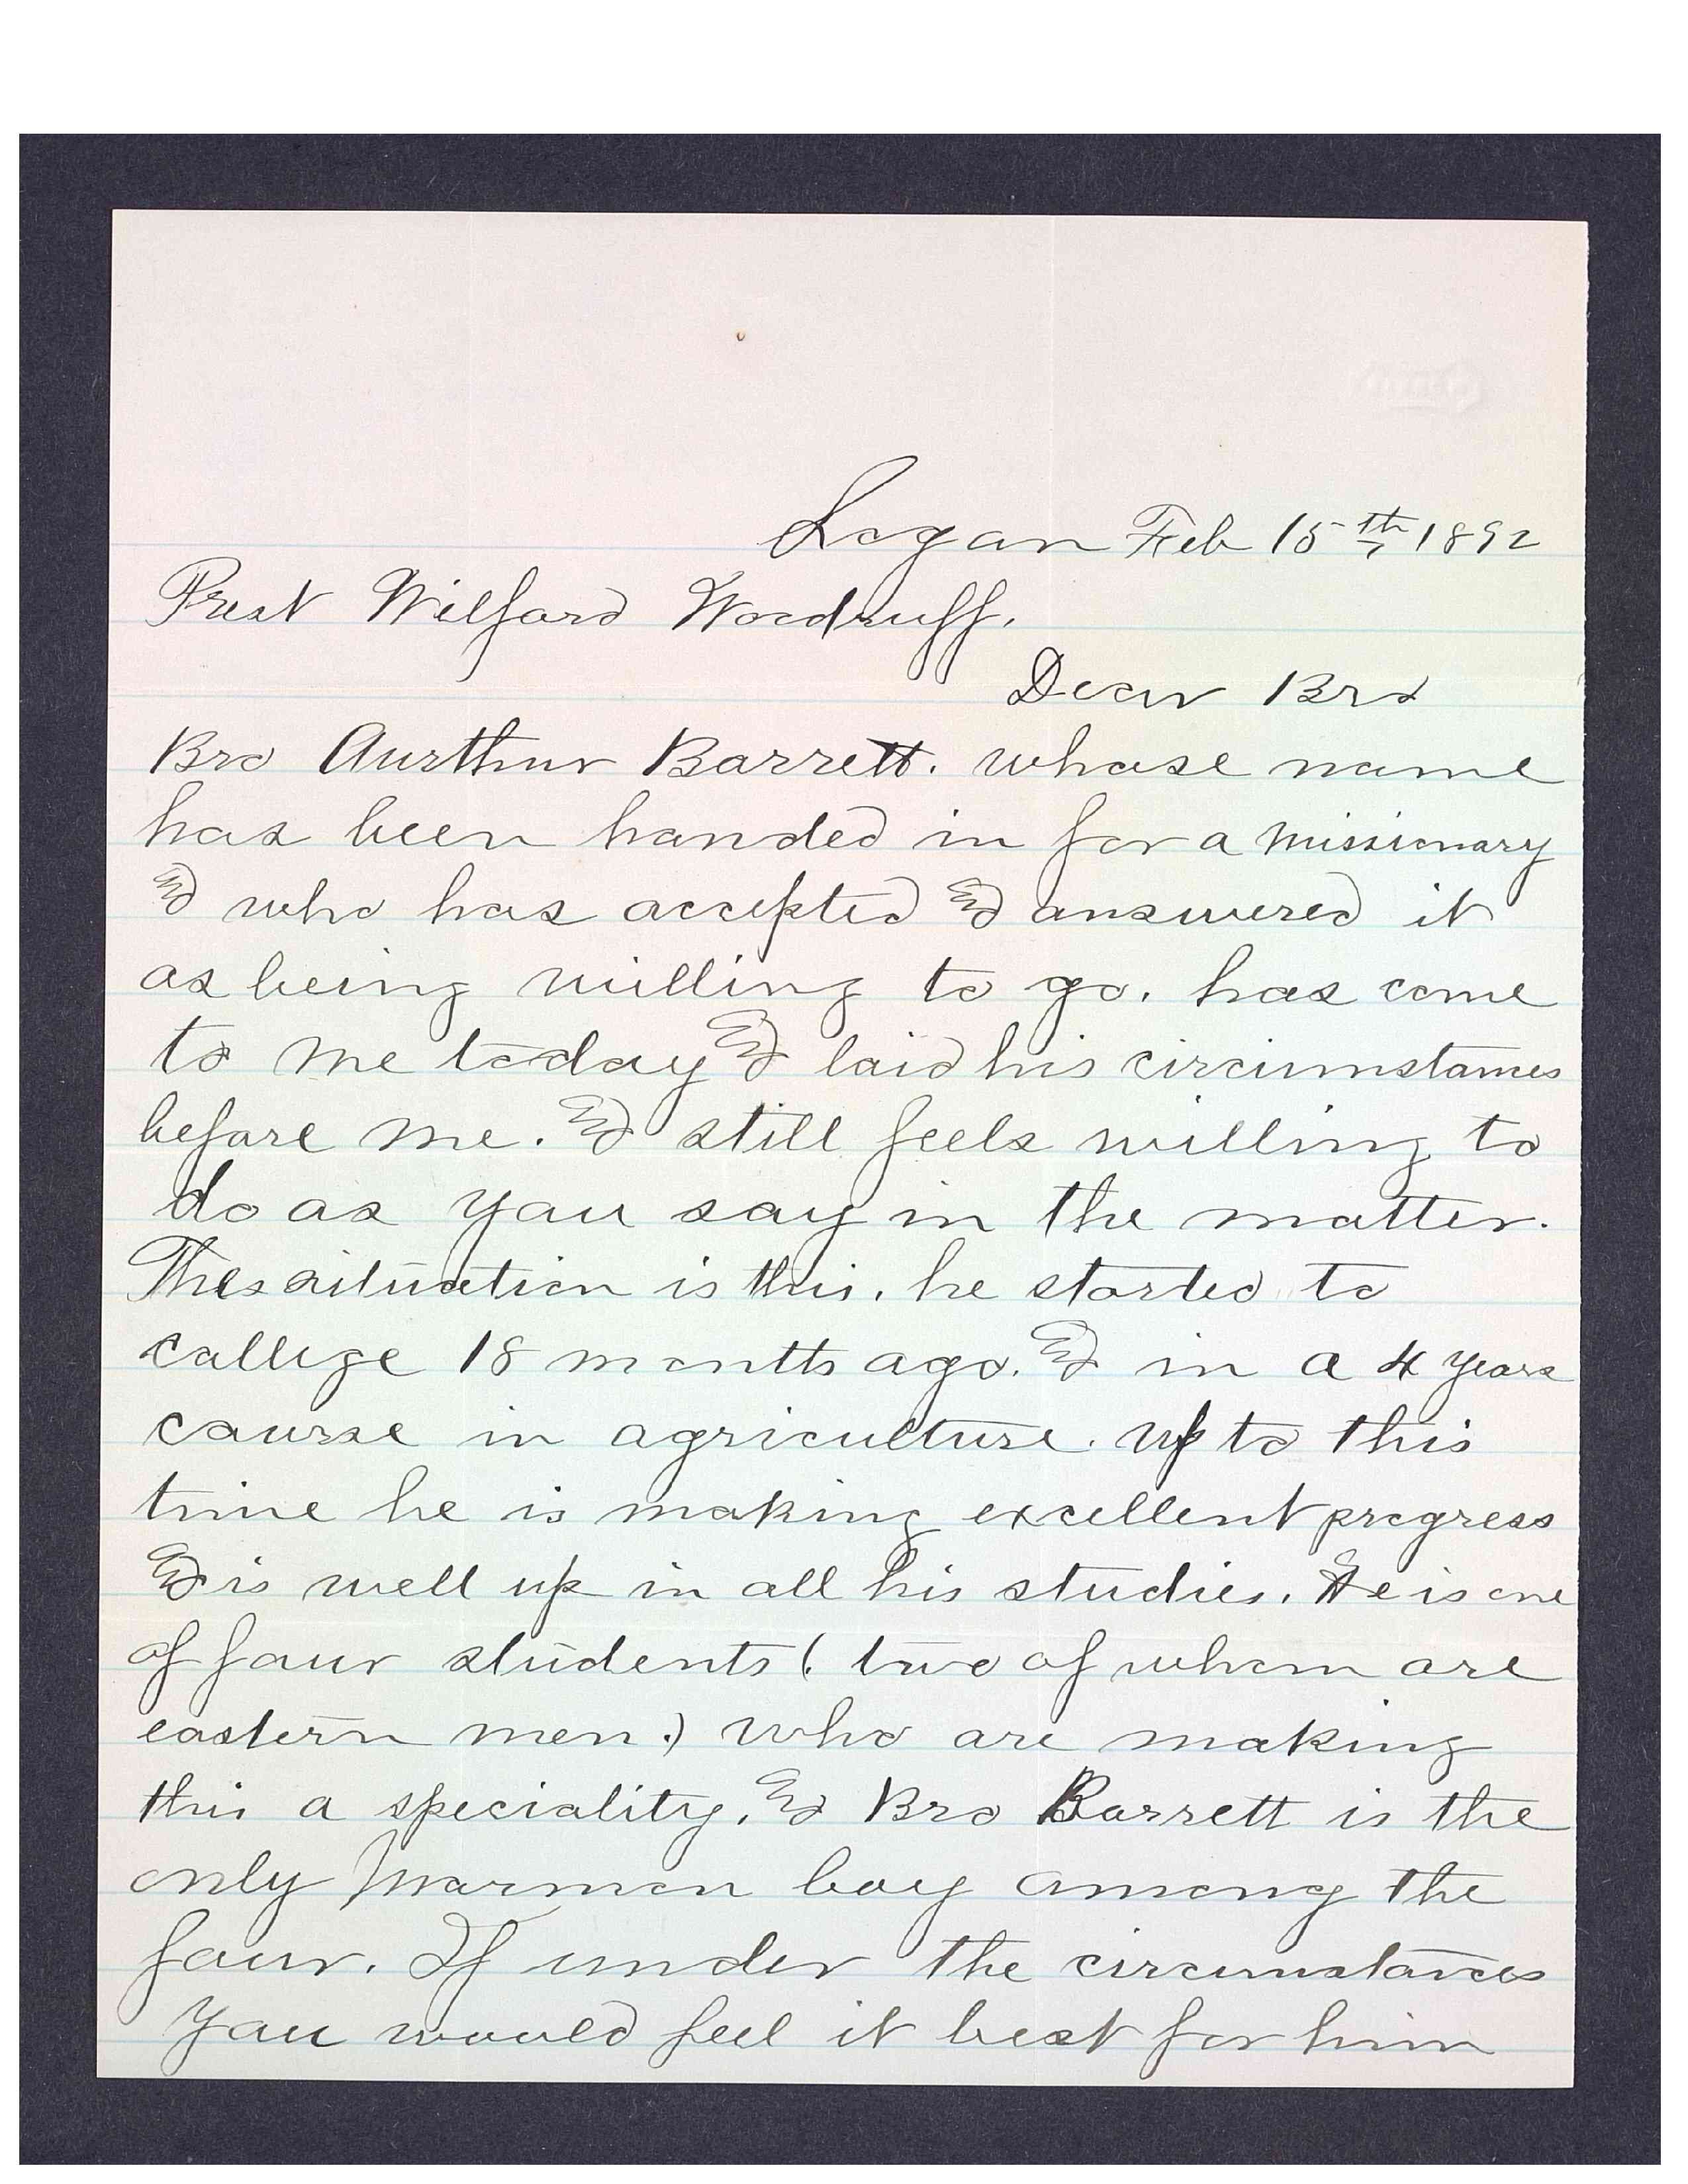 Logan Feb 15th 1892
Prest Wilford Woodruff.
Dear Bro
Bro Aurthur Barrett. whose name
has been handed in for a missionary
& who has accepted & answered it
as being willing to go. has come
to me today & laid his circumstances
before me. & still feels willing to
do as you say in the matter.
The situation is this. he started to
college 18 months ago. & in a 4 years
course in agriculture. up to this
time he is making excellent progress
& is well up in all his studies. He is one
of four students (two of whom are
eastern men.) who are making
this a speciality. & Bro Barrett is the
only Mormon boy among the
four. If under the circumstances
you would feel it best for him